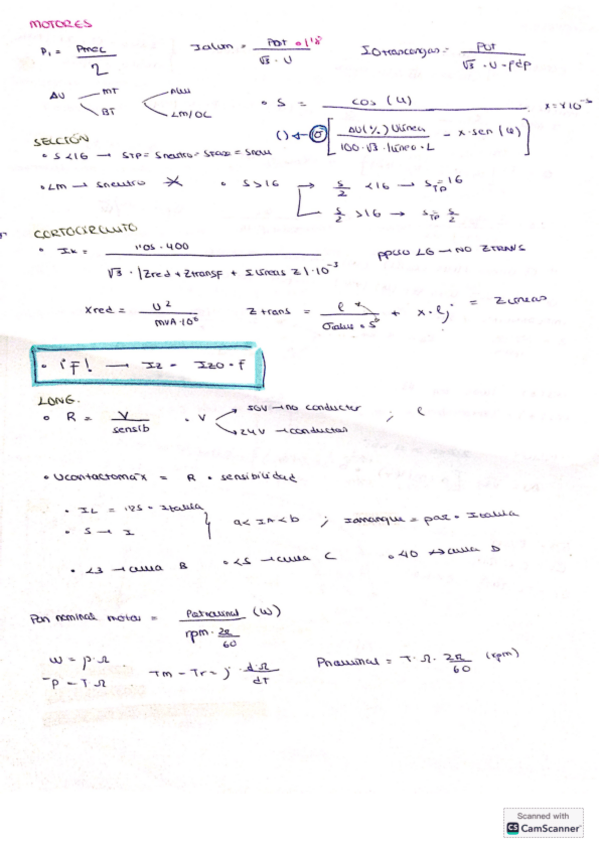 MOTORES
P1 = Pmec / 2    Ialum = Pot · 1'8 / √3 · U    Iotrascargas = Pot / √3 · U · fdp
ΔU  MT  Alum
BT  LM/OC
• S = cos (φ) / () 10⁶ [ ΔU(%) Ulínea / 100 · √3 · Ilínea · L − x · sen (φ) ]    x = x·10⁻³
SECCIÓN
• S<16 → STP = Sneutro = Sfase =
• LM → Sneutro X    • S>16 → S/2 <16 → STP = 16
S/2 >16 → STP = S/2
CORTOCIRCUITO
• Ik = 1'05 · 400 / √3 · |Zred + Ztransf + Σ líneas Z| · 10⁻³    LG → NO ZTRANS
Xred = U² / MVA · 10⁶    Ztrans = + x · lj = Zlíneas
• if! → Iz = Izo · f
LONG.
• R = V / sensib    • V  50V → no conductor ; ρ
24V → conductor
• Ucontactomáx = R · sensibilidad
• IL = 1'25 · Italula
• S → I    } a < IA < b ; Iarranque = par · Italula
• <3 → curva B    • <5 → curva C    • 40 ↔ curva D
Par nominal motor = Pnominal (W) / rpm · 2π/60
W = P · Ω
P = T · Ω    Tm − Tr = j · dΩ / dT    Pnominal = T · Ω · 2π/60 (rpm)
Scanned with
CS CamScanner